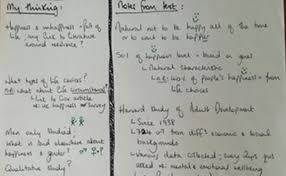 My thinking:
Happiness & unhappiness = part of
life; any link to literature
around resilience?
What types of life choices?
AND what about life circumstances?
Link to Cox article
we use happened us
Men only studied;
What is said elsewhere about
happiness & gender?
Qualitative study?
Notes from text:
Natural not to be happy all of the time
or to be sad to be happier
50% of happiness level = based on goal
natural characteristics
40% of people's happiness = from
life choices
Harvard Study of Adult Development
Since 1938
from diff. economic & social
backgrounds
Various data collected; every
mental & emotional wellbeing